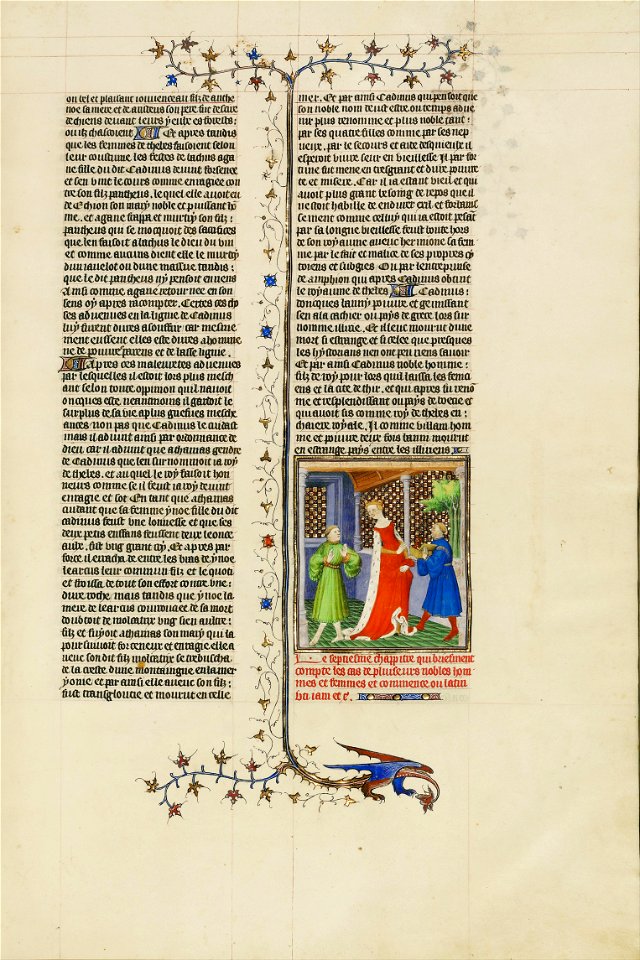 on bel et plaisant iouuenceau filz de anthe
noe sa mere et de auteus son pere fut desaire
de chiens deuant leurs yeulx es forestz:
ou ilz chassoient Et apres tandis
que les femmes de thebes faisoient selon
leur coustume les festes de bachus agaue
fille du dit Cadmus deuint forsenee
et sen vint le cours comme enragiee con
tre son filz pantheus le quel elle auoit eu
de Echion son mary noble et puissant ho
me et agaue frappa et murtry son filz:
pantheus qui se mocquoit des sacrifices
que len faisoit a bachus le dieu du vin
et comme aucuns dient elle le murtry
dun iauelot ou dune massue tandis:
que le dit pantheus ny pensoit en riens
Ainsi comme agaue retournee en son
sens oy apres racompter Certes ces cho
ses aduenues en la ligne de Cadmus
luy furent dures a souffrir car mesme
ment eussent elles este dures a homme
ne de poures parens et de basse lignie
Apres ces maleurtes aduenues
par lesquelles il estoit lors plus mesch
ant selon toute oppinion quil nauoit
oncques este neantmoins il gardoit le
surplus de sa vie a plus griefues mesche
ances non pas que Cadmus le cuidast
mais il aduint ainsi par ordonnance de
dieu car il aduint que athamas gendre
de Cadmus que len surnommoit ia roy
de thebes et au quel le roy faisoit hon
neurs comme se il feust ia roy deuint
enragie et sot En tant que athamas
cuidant que sa femme ynoe fille du dit
cadmus feust vne lionnesse et que ses
deux petis enffans feussent deux leonce
aulx fist vng grant cry Et apres par
force il erracha de entre les bras de ynoe
learcus leur commun filz et le quoti
et froissa de tout son effort contre vne:
dure roche mais tandis que ynoe la
mere de learcus courroucee de sa mort
doubtoit de molcatur vng sien aultre:
filz et fuyoit athamas son mary qui la
poursuiuoit forceneux et enragie elle a
uec son dit filz molcatur se trebuscha
de la creste dune montaingne en la mer
yonie et par ainsi elle auec son filz:
fust transgloutie et mourut en celle
mer. Et par ainsi Cadmus qui pensoit que
son noble nom deust estre ou temps adue
nir plus renomme et plus noble tant:
par ses quatre filles comme par ses nep
ueux par le secours et aide desquieulx il
esperoit viure seur en vieillesse Il par for
tune fut mene en tresgrant et dure pouure
te et misere Car il ia estant vieil et qui
auoit plus grant besoing de repos que il
ne estoit habille de endurer exil et forbanis
sement comme celuy qui ia estoit pesant
par sa longue vieillesse feust boute hors
de son royaume auec hermione sa fem
me par le fait et malice de ses propres cy
toiens et subgies Ou par lentreprinse
de amphion qui apres Cadmus obtint
le royaume de thebes Cadmus:
doncques lamy pouure et gemissant
sen ala cachier ou pays de grece lors sur
nomme illirie. Et illec mourut dune
mort si estrange et si celee que presques
les hystorians nen ont peu riens sauoir
Et par ainsi Cadmus noble homme:
filz de roy pour lors quil laissa les fenici
ens et la cite de thir, et qui apres fu reno
me et resplendissant ou pays de boece et
qui auoit sis comme roy de thebes en:
chaiere royale, Il comme villain hom
me et pouure deux fois banni mourut
en estrange pays entre les illiriens
Le septiesme chappitre qui briefment
compte les cas de pluiseurs nobles hom
mes et femmes et commence ou latin
vbi iam et c̄.